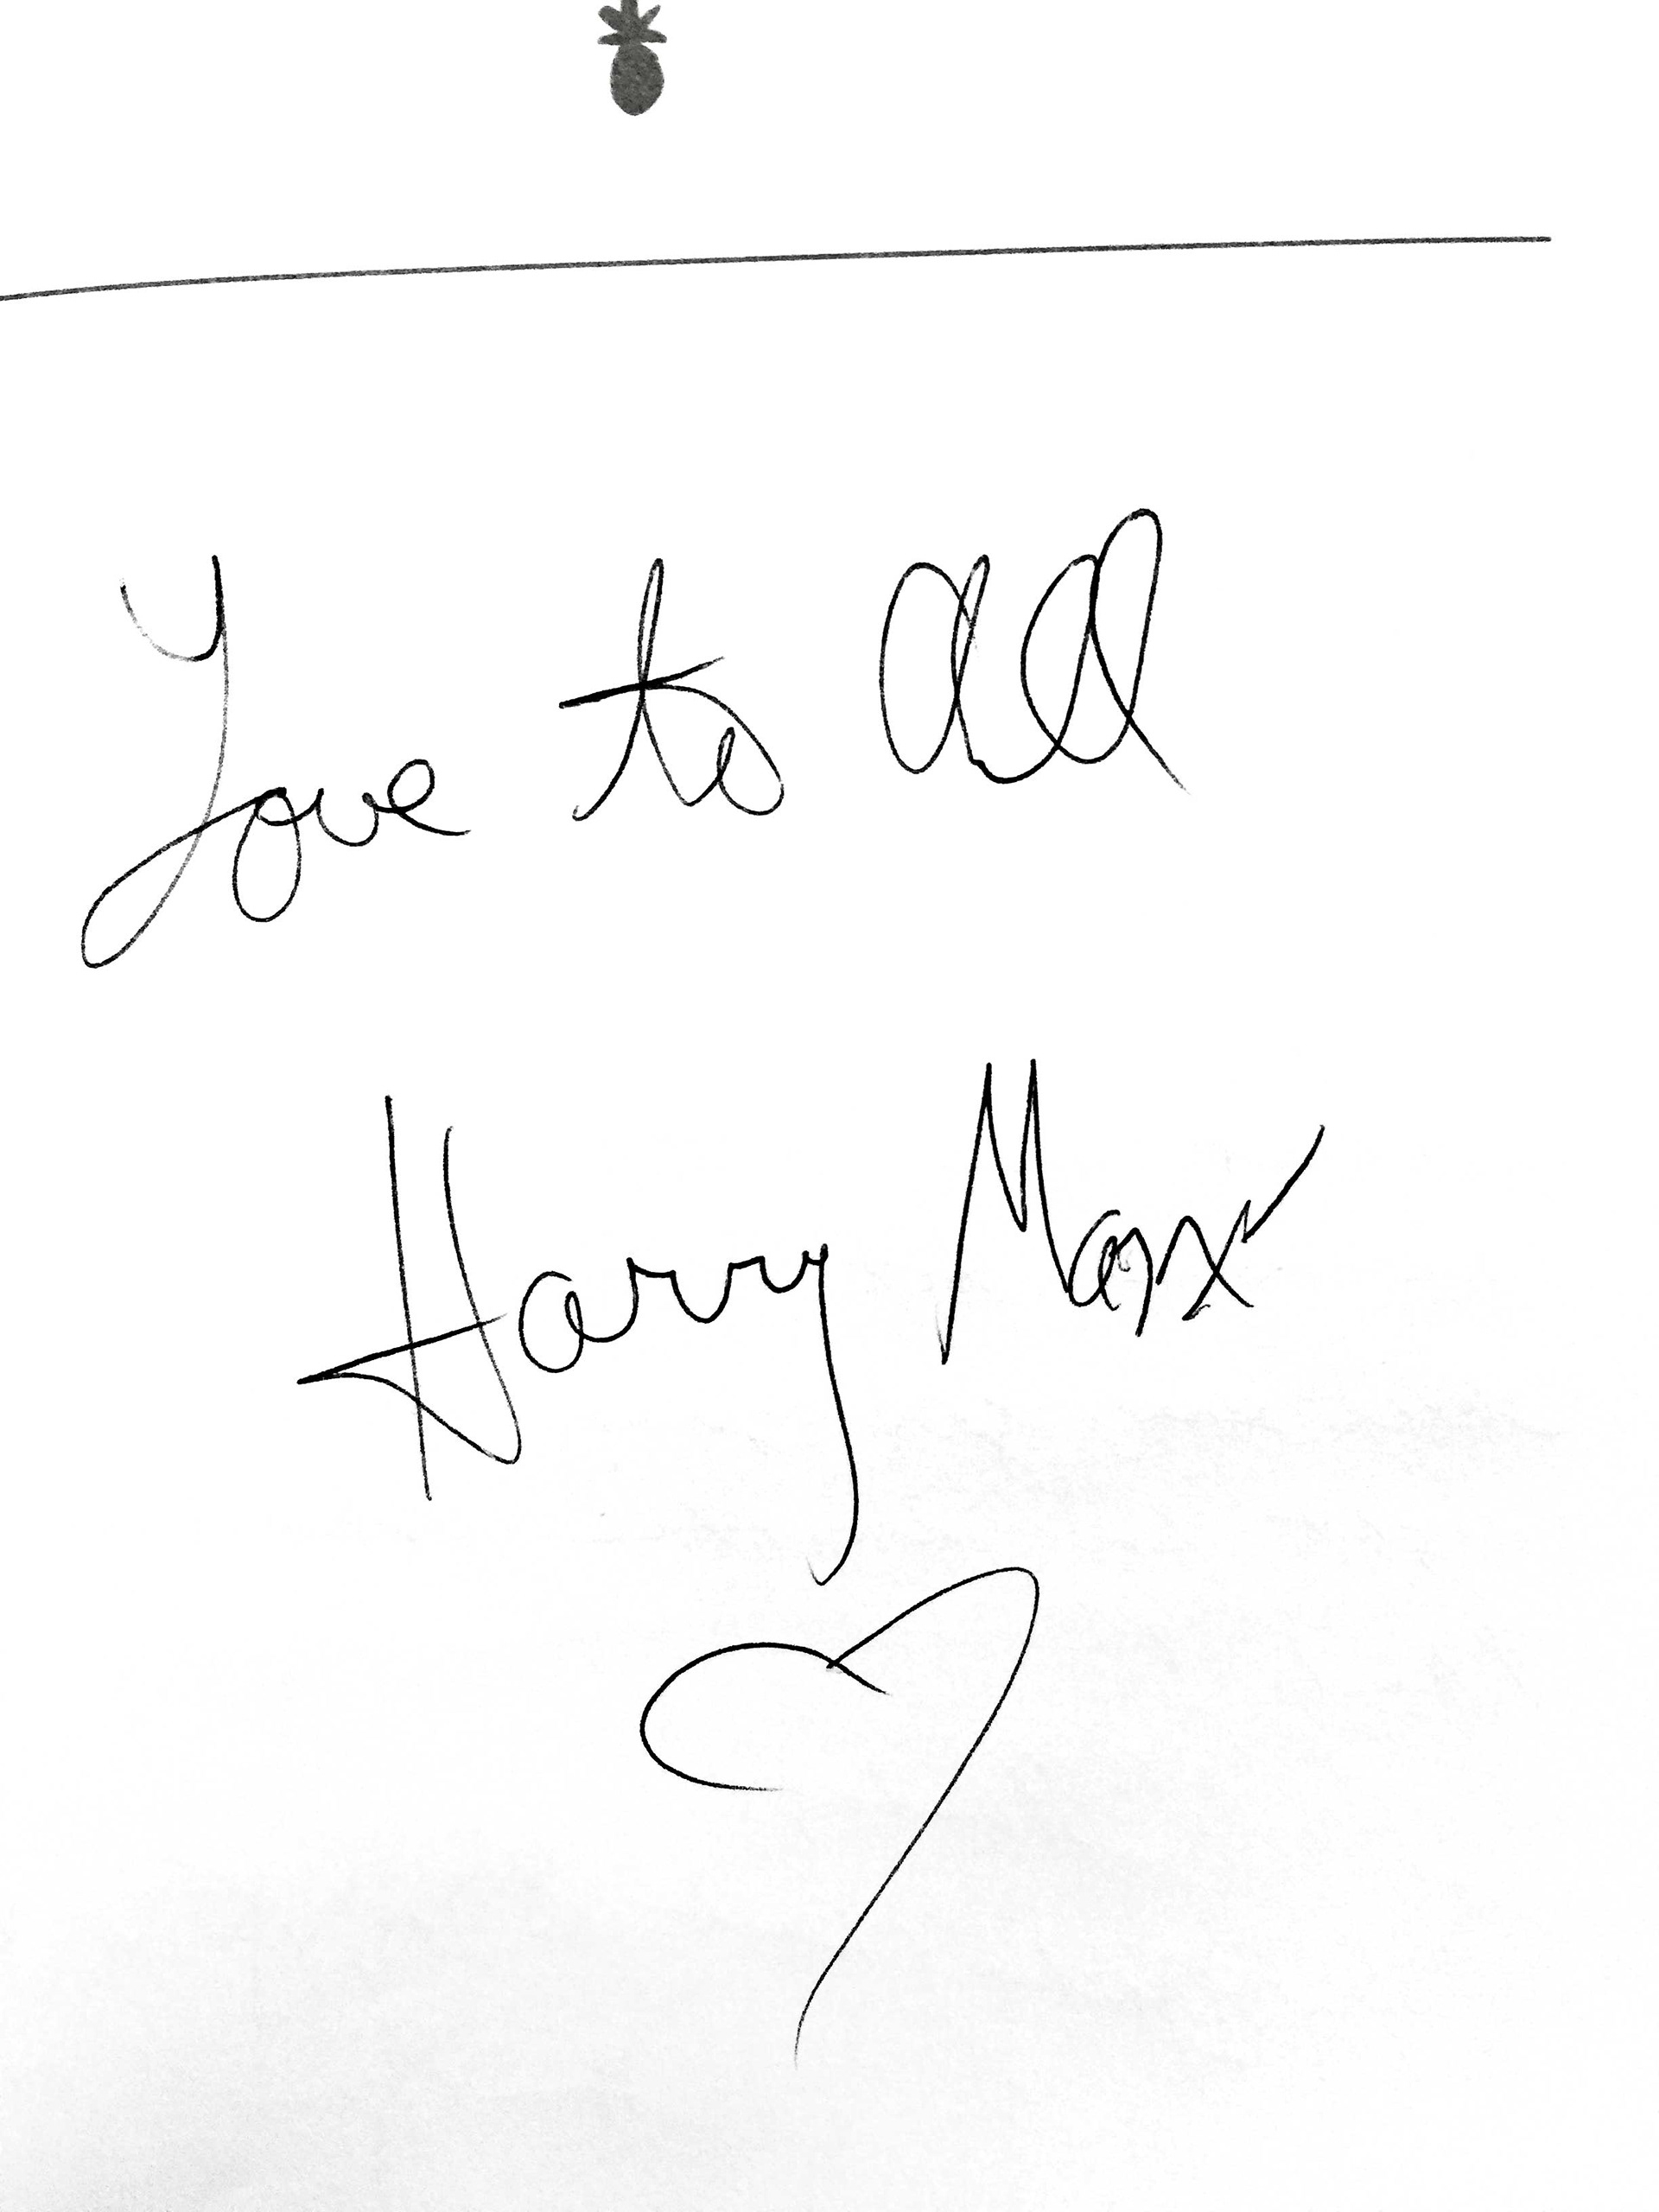 Love to all
Harry Marx